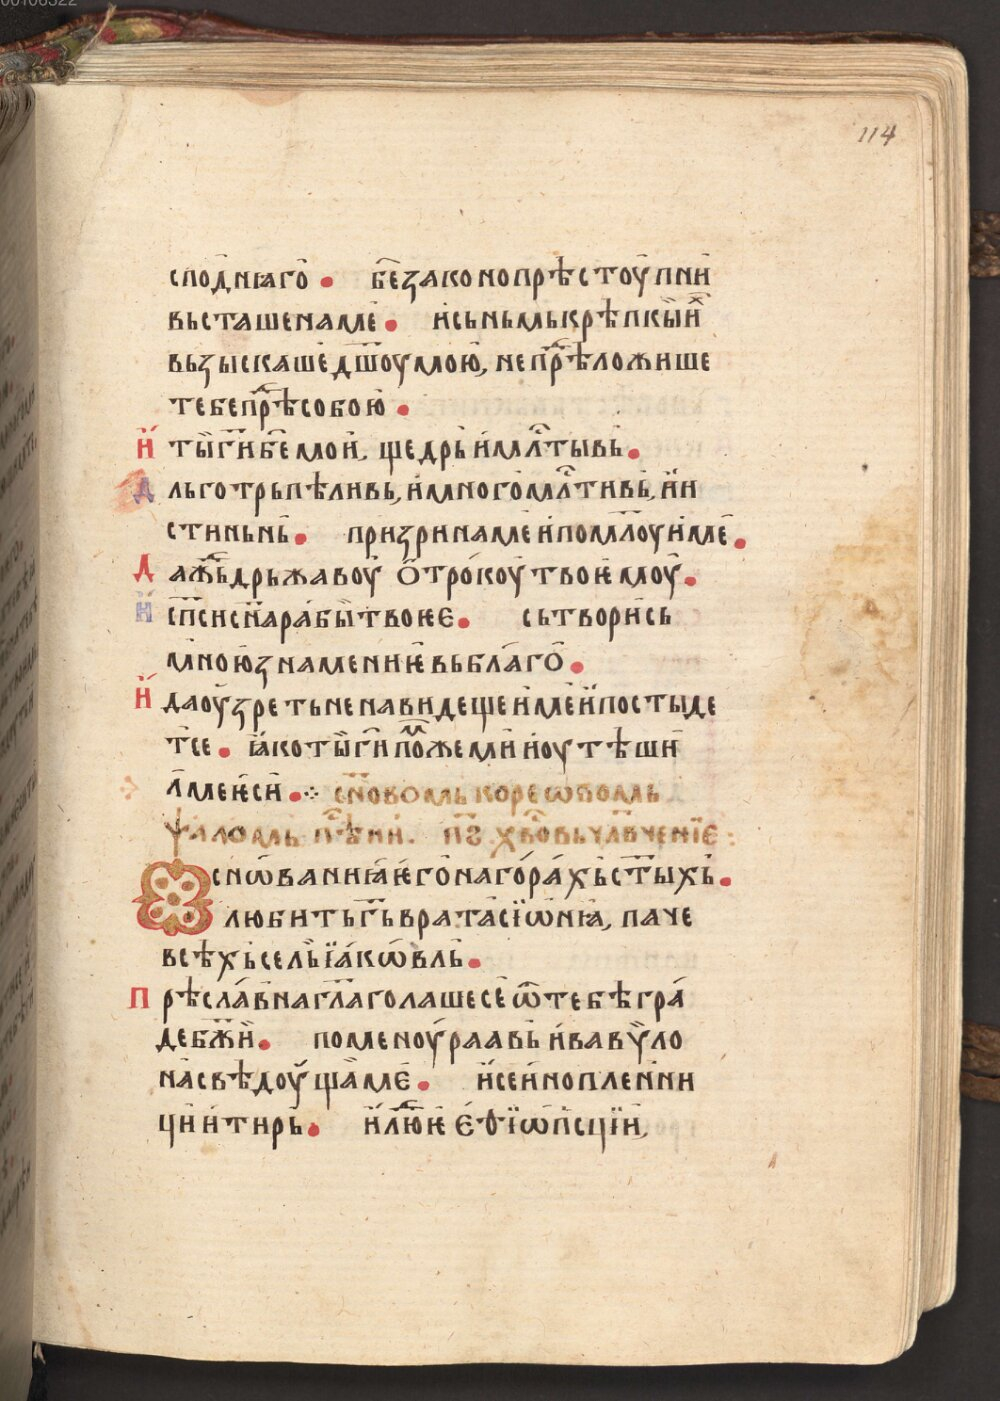 00106322
114
споднꙗго҆ • бе҃законопрѣстоу҆пни҆
вьсташенаме҆ • и҆сьньмькрѣпкы҆и҆х
вьзыскашед҃шоумою҆, непⷣрѣложише
тебепⷣрѣсобою҆ •
И҆ ты҆г҃ибе҃мои҆, щедрьи҆млⷭ҇тывь •
Д льготрьпѣливь, и҆многомлⷭ҇тивь, и҆и
стиньнь • призринамеи҆помл҃оуи҆ме •
Д аж҃ⷣьдрьжавоу҆ ѻ҆тро́коу҆твоѥ҆моу҆ •
И҆ сп҃сисн҃араби҆твоѥѥ • сьтворисьь
мноюзнамениѥ҆вьбл҃аго҆ •
И҆ даоу҆зретьненавидещеи҆ме҆и҆постыде
тсе • ꙗ҆коты҆г҃ипомⷪ҇жеми҆и҆оутѣши҆
л҆меѥ҆си҆ • сн҃овомькореѡвомь
ѱаломьпⷭ҇ѣни • п҃ꙅ хв҃овьчлв҃ченїе :
Ѻ снѡ҆ваниꙗ҆ѥ҆го҆наго́ра́хьст҃ыхь •
любитьг҃ьвратасїѡ҆нꙗ, паче
всѣхьсель҆їа́кѡ҆вль •
П рѣсла́внагл҃аголашесеѡ҆тебѣгра́
дебж҃и҆ • поменоу́раавьи҆вавѷ҆ло
на́свѣдоу҆ща҆ме҆ • и҆сеи҆ноплеме҆нни
ци҆и҆тирь • и҆лю҃ѥ҆ е҆ѳїѡ҆пⷭ҇сции҆,